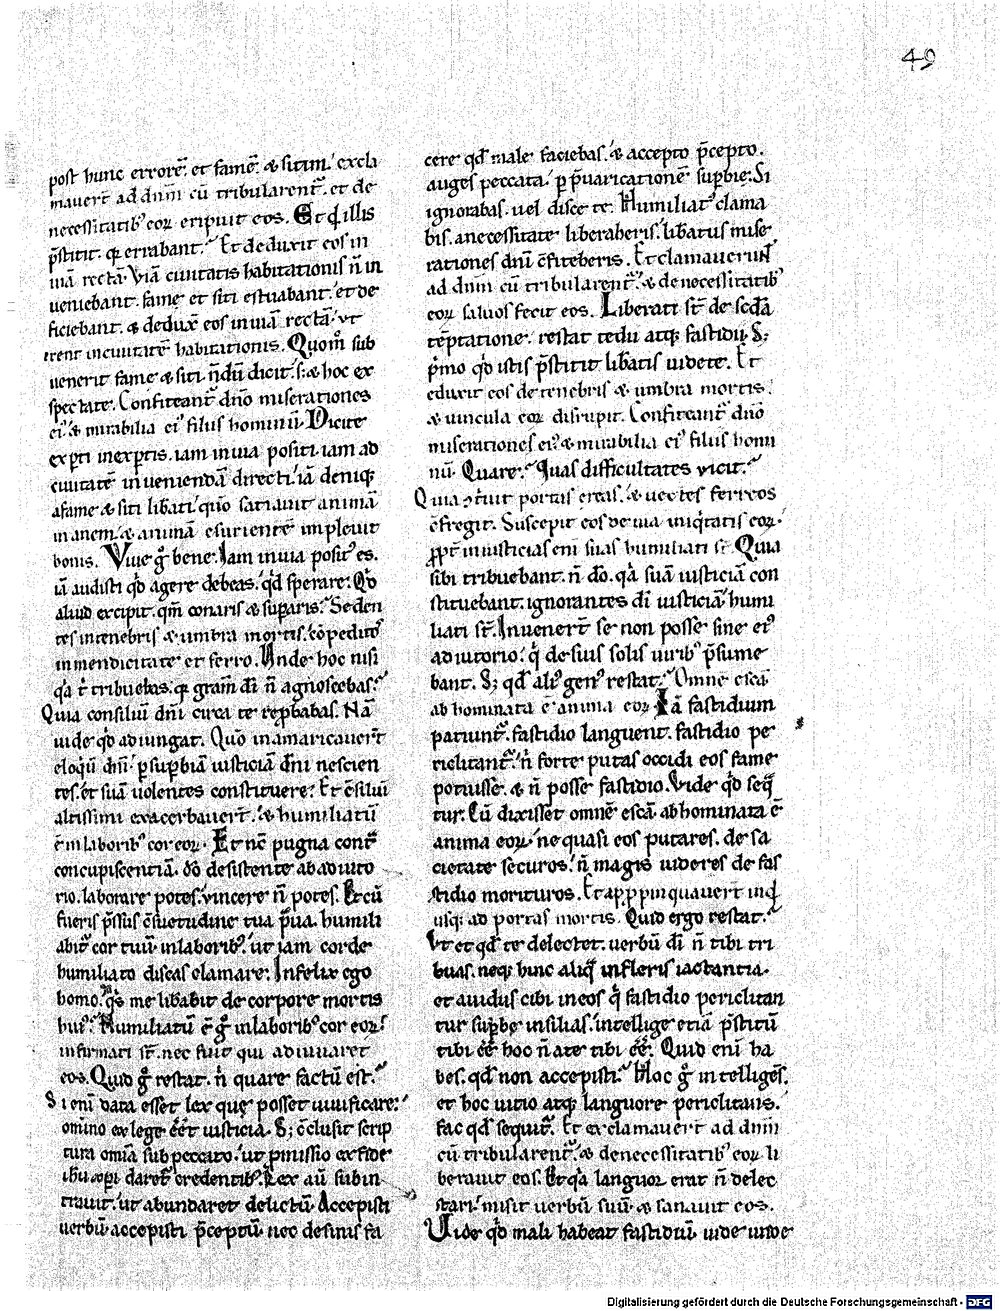 49
post hunc errorē. et famē. & sitim. excla
mauert̄ ad dn̄m cū tribularent᷑. et de
necessitatib᷒ eoꝝ eripuit eos. Et qd̄ illis
p̄stitit. q̇ errabant. Et deduxit eos in
uiā rectā. Viā ciuitatis habitationis n̄ in
ueniebant. fame et siti estuabant. et de
ficiebant. & deduxē eos in uiā rectā. ut
irent in ciuitatē habitationis. Quom̊ sub
uenerit fame & siti. n̄dū dicit. s; & hoc ex
spectate. Confiteant᷑ dn̄o miserationes
ei᷒. & mirabilia ei᷒ filiis hominū. Dicite
exꝑti inexꝑtis. iam in uia positi. iam ad
ciuitatē inueniendā directi. iā deniqꝫ
a fame & siti libati. quō satiauit animā
inanem. & animā esurientē impleuit
bonis. Viue g̊ bene. Iam in uia posit᷒ es.
iā audisti qd̄ agere debeas. qd̄ sperare. Qd̄
aliud excipit. qm̄ conaris & suꝑaris. Seden
tes in tenebris & umbra mortis. cōpedito᷒
in mendicitate et ferro. Unde hoc nisi
q̇a t̄ tribuebas. q̇ gram̄ dī n̄ agnoscebas.
Quia consiliū dn̄i circa te rep̄babas. Nā
uide qd̄ adiungat. Quō inamaricauert̄
eloqū dn̄i. ꝑ suꝑbiā iusticiā dn̄i nescien
tes. et suā uolentes constituere. Et c̄siliū
altissimi exacerbauert̄. & humiliatū
ē in laborib᷒ cor eoꝝ. Et nc̄ pugna cont᷑
concupiscentiā. dō desistente ab adiuto
rio. laborare potes. uincere n̄ potes. Et cū
fueris p̄ssus c̄suetudine tua p̄ua. humili
abit᷑ cor tuū in laborib᷒. ut iam corde
humiliato discas clamare. Infelix ego
homo. q̇s me libabit de corpore mortis
hui᷒. Humiliatū ē g̊ in laborib᷒ cor eoꝝ.
infirmati st̄. nec fuit qui adiuuaret
eos. Quid g̊ restat. n̄ quare factū est.
Si enī data esset lex que posset uiuificare.
omnino ex lege eēt iusticia. S; c̄clusit scrip
tura omīa sub peccato. ut ꝓmissio ex fide
ihū xpi daret᷑ credentib᷒. Lex aū subin
trauit. ut abundaret delictū. Accepisti
uerbū. accepisti p̄ceptū. nec desinis fa
cere qd̄ male faciebas. & accepto p̄cepto.
auges peccata. ꝑ p̄uaricationē suꝑbie. Si
ignorabas. uel disce te. Humiliat᷒ clama
bis. a necessitate liberaberis. libatus mise
rationes dn̄i c̄fiteberis. Et clamauerunt
ad dn̄m cū tribularent᷑. & de necessitatib᷒
eoꝝ saluos fecit eos. Liberati st̄ de sc̄da
tēptatione. restat tedii atqꝫ fastidii. S;
p̄mo qd̄ istis p̄stitit libatis uidete. Et
eduxit eos de tenebris & umbra mortis.
& uincula eoꝝ disrupit. Confiteant᷑ dn̄o
miserationes ei᷒. & mirabilia ei᷒ filiis homi
nū. Quare. Quas difficultates uicit.
Quia ↄtriuit portas ereas. & uectes ferreos
c̄fregit. Suscepit eos de uia iniq̇tatis eoꝝ.
ꝓpt̄ iniusticias enī suas humiliati st̄. Quia
sibi tribuebant. n̄ dō. q̇a suā iusticiā con
stituebant. ignorantes dī iusticiā. humi
liati st̄. Inuenert̄ se non posse sine ei᷒
adiutorio. q̇ de suis solis uirib᷒ p̄sume
bant. S; qd̄ ali᷒ gen᷒ restat. Omne escā
abhominata ē anima eoꝝ. Iā fastidium
patiunt᷑. fastidio languent. fastidio pe
riclitant᷑. n̄ forte putas occidi eos fame
potuisse. & n̄ posse fastidio. Vide qd̄ seq̇
tur. Cū dixisset omnē escā abhominata ē
anima eoꝝ. ne quasi eos putares. de sa
cietate securos. n̄ magis uideres de fas
tidio morituros. Et appropinquauert̄ inq̇
usqꝫ ad portas mortis. Quid ergo restat.
Vt et qd̄ te delectet. uerbū dī n̄ tibi tri
buas. neqꝫ hinc aliq̄ infleris iactantia.
et auidus cibi in eos q̇ fastidio periclitan
tur suꝑbe insilias. intellige etiā p̄stitū
tibi eē hoc n̄ a te tibi eē. Quid enī ha
bes. qd̄ non accepisti. Hoc g̊ intelliges.
et hoc uitio atqꝫ languore periclitaris.
fac qd̄ sequit᷑. Et exclamauert̄ ad dn̄m
cū tribularent᷑. & de necessitatib᷒ eoꝝ li
berauit eos. Et q̇a languor erat n̄ delec
tari. misit uerbū suū. & sanauit eos.
Uide qd̄ mali habeat fastidiū. uide unde
Digitalisierung gefördert durch die Deutsche Forschungsgemeinschaft - DFG